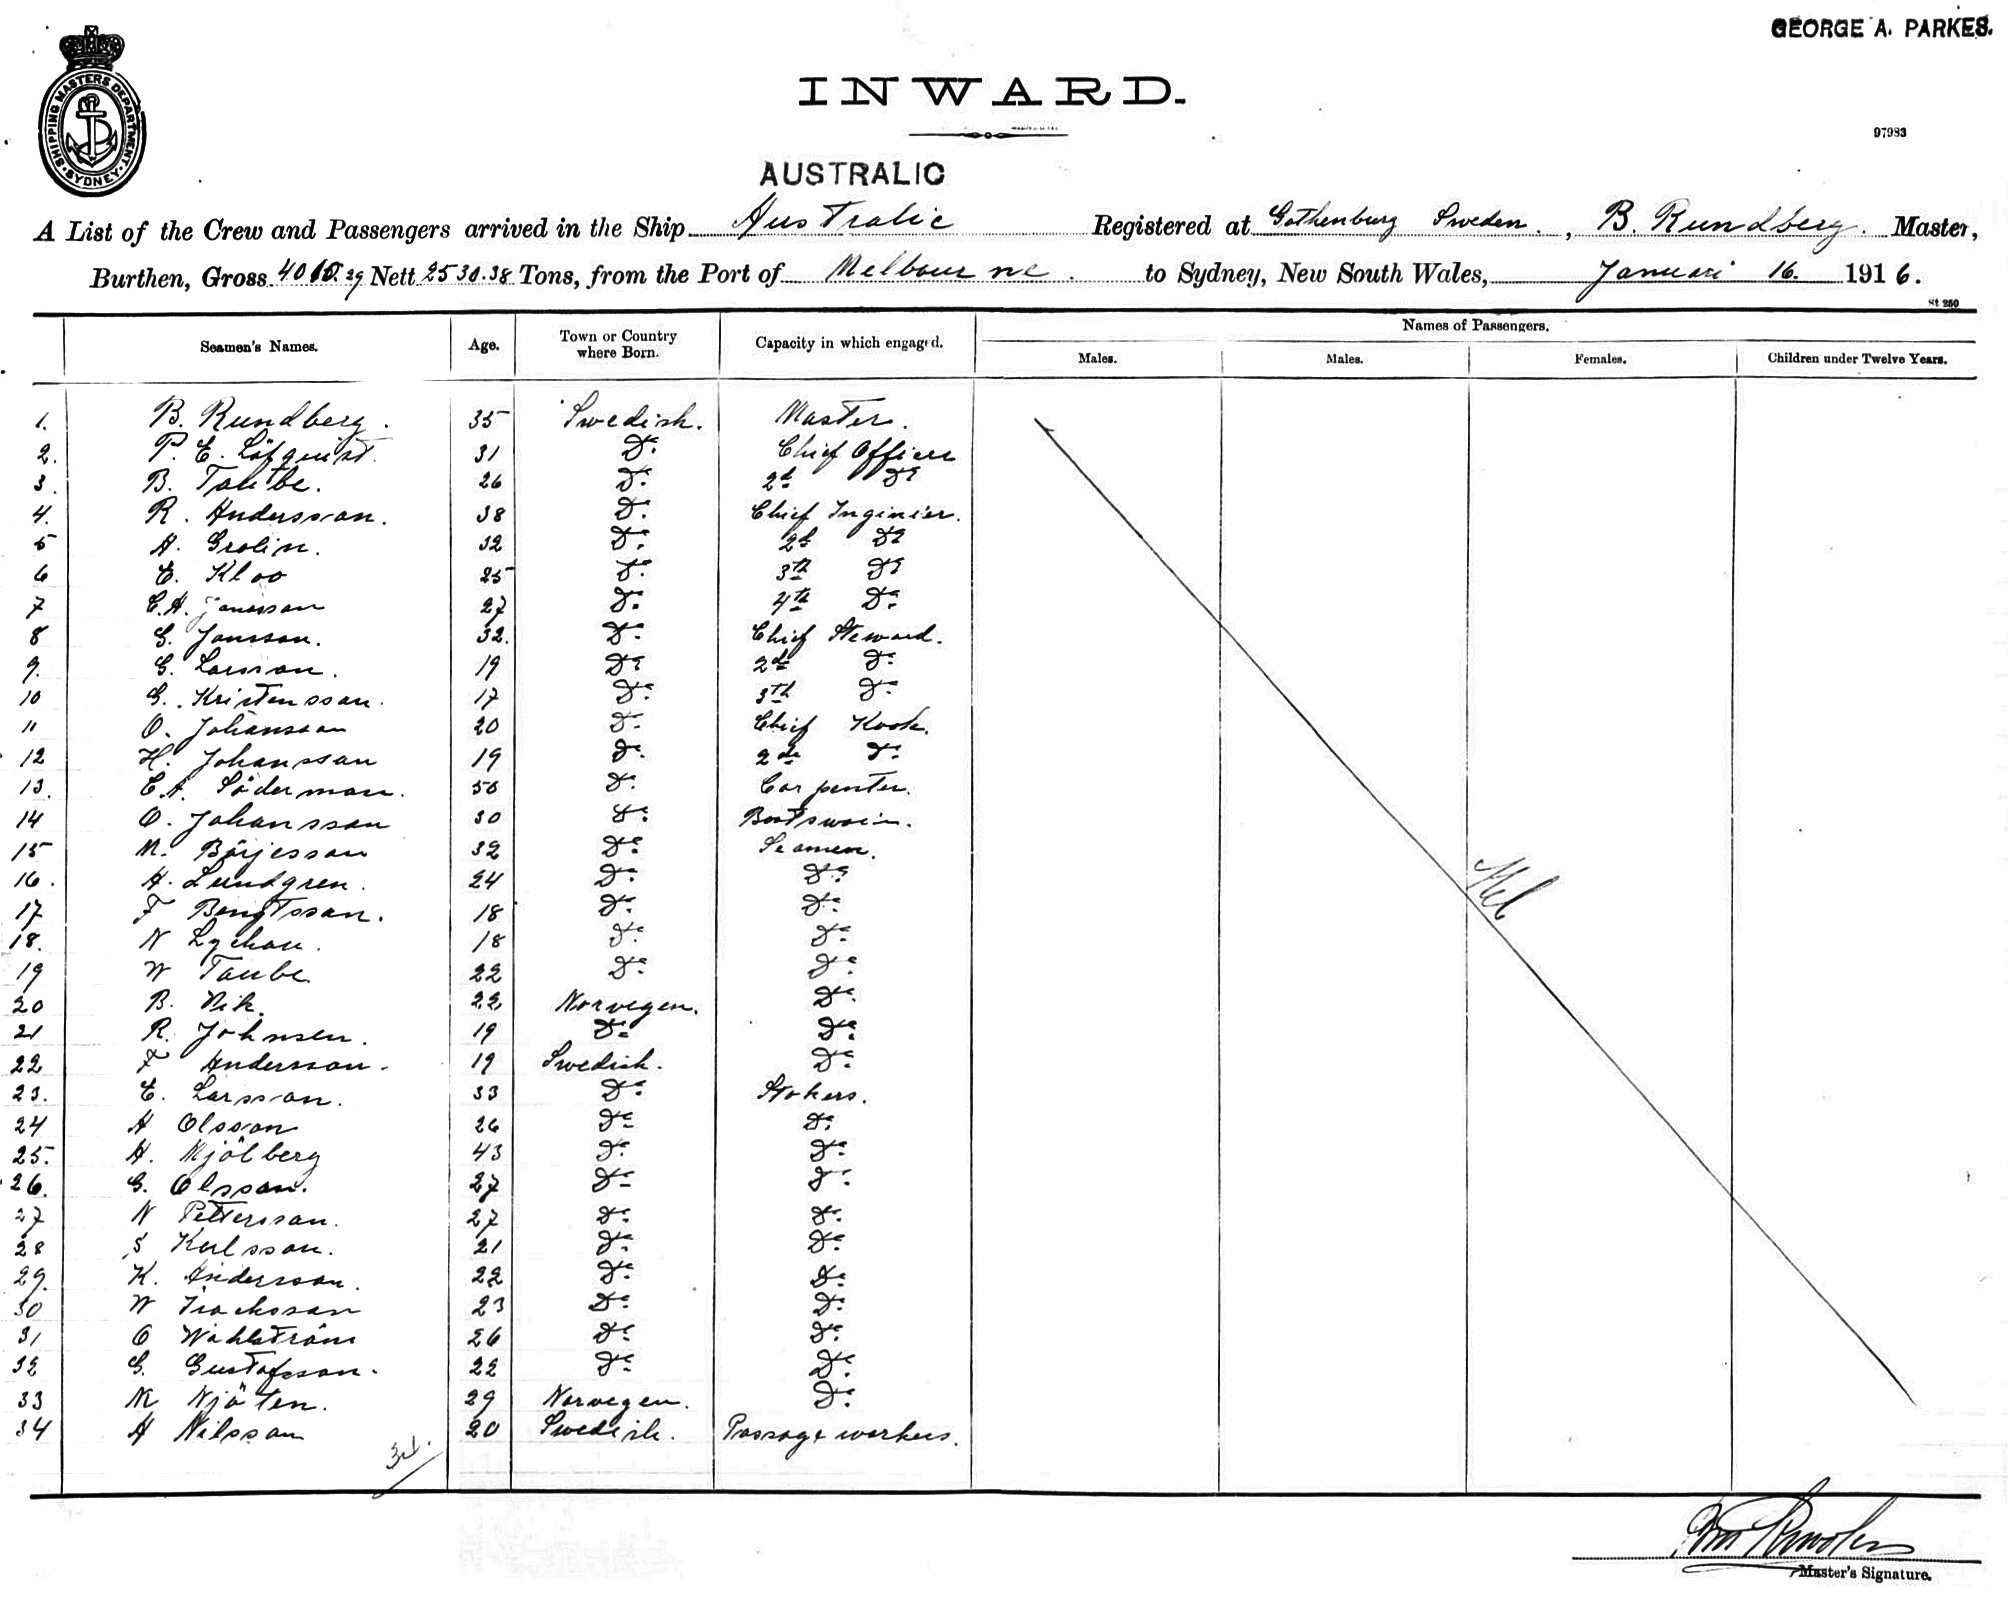 GEORGE A. PARKES.
SHIPPING MASTERS DEPARTMENT · SYDNEY ·
INWARD.
97983
AUSTRALIC
A List of the Crew and Passengers arrived in the Ship Australic Registered at Gothenburg Sweden. , B. Rundberg. Master,
Burthen, Gross 29 Nett 2530.38 Tons, from the Port of Melbourne. to Sydney, New South Wales, Januari 16. 1916.
St 250
Seamen's Names. Age. Town or Country where Born. Capacity in which engaged. Names of Passengers.
Males. Males. Females. Children under Twelve Years.
1. B. Rundberg. 35 Swedish. Master.
2. P. E. Löfquist. 31 Do. Chief Officer
3. B. Taube. 26 Do. 2d Do
4. R. Andersson. 38 Do. Chief Inginier.
5 H. Grolin. 32 Do. 2d Do
6 E. Kloo 25 Do. 3th Do
7 E.H. Jonasson 27 Do. 4th Do.
8 G. Jonsson. 32. Do. Chief Steward.
9. G. Larsson. 19 Do 2de Do.
10 G. Kristensson. 17 Do. 3th Do.
11 O. Johansson 20 Do. Chief Kook.
12 H. Johansson 19 Do. 2de Do.
13. E.A. Söderman. 50 Do. Carpenter.
14 O. Johansson 30 Do. Bootswain.
15 M. Börjesson 32 Do. Seamen.
16. H. Lundgren. 24 Do. Do.
17 F Bengtsson. 18 Do. Do.
18. N Lychou. 18 Do. Do.
19 W Taube. 22 Do. Do.
20 B. Vik. 22 Norvegen. Do.
21 R. Johnsen. 19 Do. Do.
22 F Andersson. 19 Swedish. Do.
23. E. Larsson. 33 Do. Stokers.
24 A Olsson 26 Do. Do.
25. H. Mjölberg 43 Do. Do.
26. G. Olsson. 27 Do. Do.
27 N Pettersson. 27 Do. Do.
28 S Karlsson. 21 Do. Do.
29. K. Andersson. 22 Do. Do.
30 W 23 Do. Do.
31 O Wahlström 26 Do. Do.
32 G. Gustafsson. 22 Do. Do.
33 M Njöten. 29 Norvegen. Do.
34 A Nilsson 20 Swedish. Passage workers.
34.
Master's Signature.